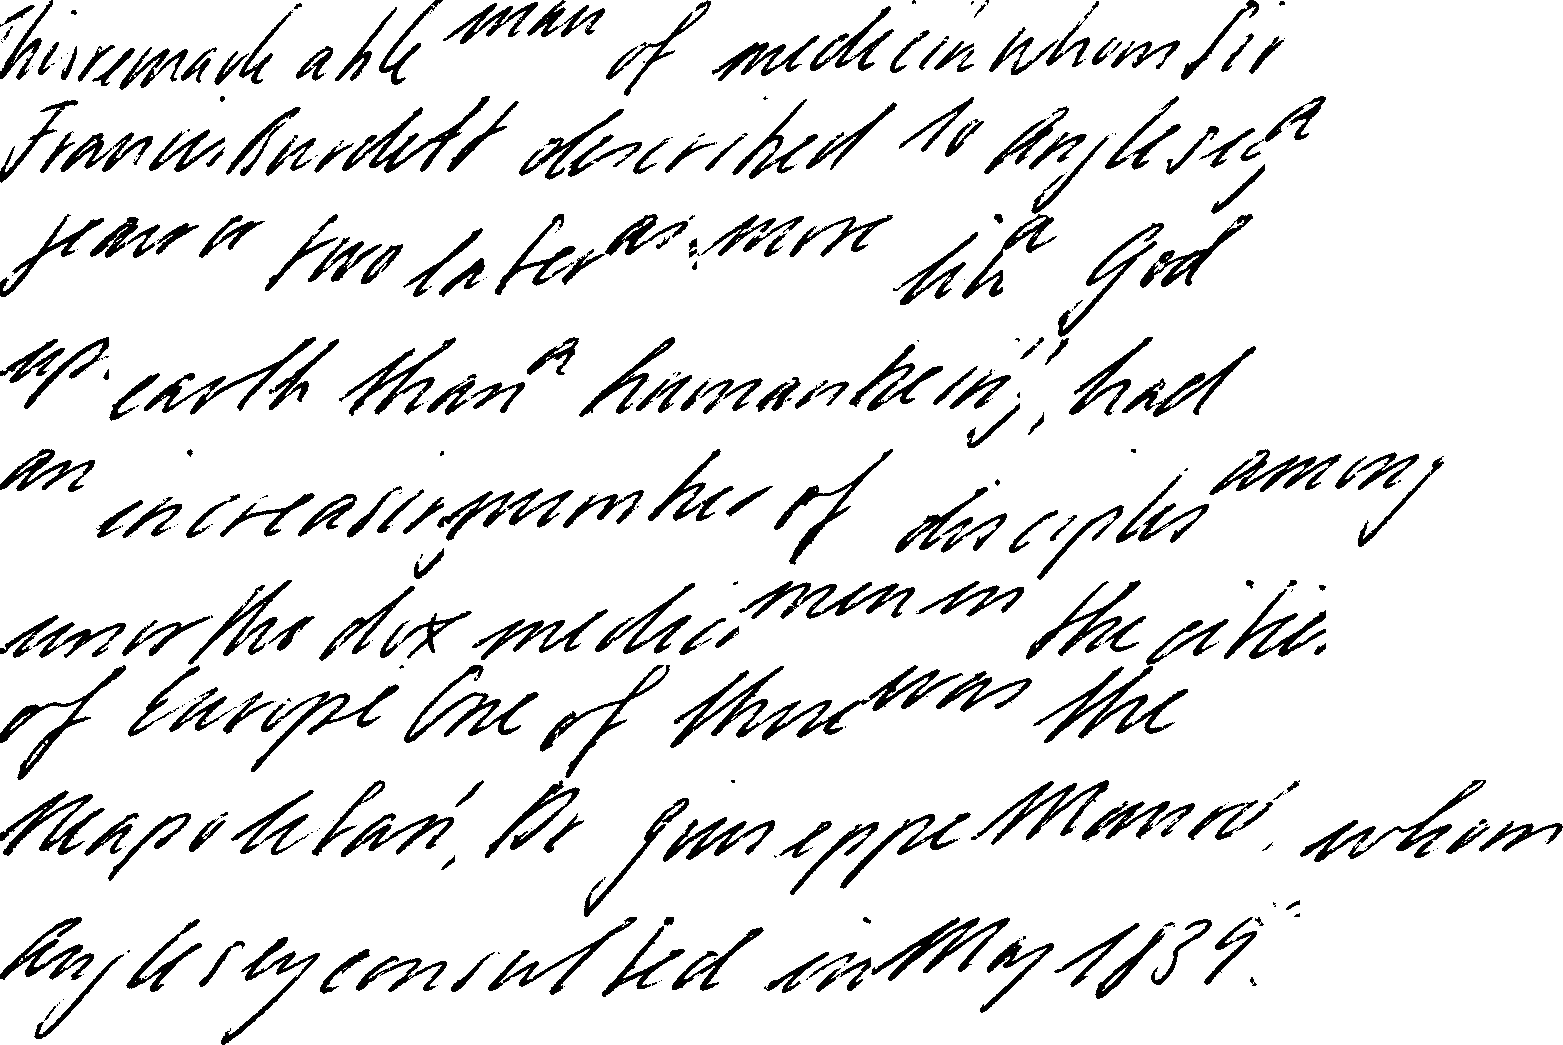 This remarkable man of medicin whom Sir
Francis Burdett described to Anglesey a
year or two later as 'more like a God
up. earth than a human being', had
an increasing number of disciples among
unorthodox medical men in the cities
of Europe. One of these was the
Neapolitan, Dr Giuseppe Mauro, whom
Anglesey consulted in May 1839.